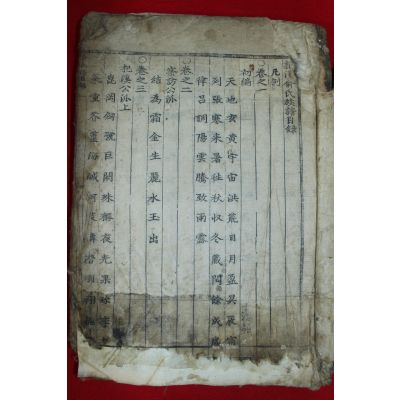 氏族譜目錄
凡例
○卷之一
初編
天地玄黃宇宙洪荒日月盈昃辰宿
列張寒來暑往秋收冬藏閏餘成歲
律呂調陽雲騰致雨露
○卷之二
公派
結為霜金生麗水玉出
○卷之三
公派上
崑岡劍號巨闕珠稱夜光果珍李
菜重芥薑海鹹河淡鱗潛羽翔